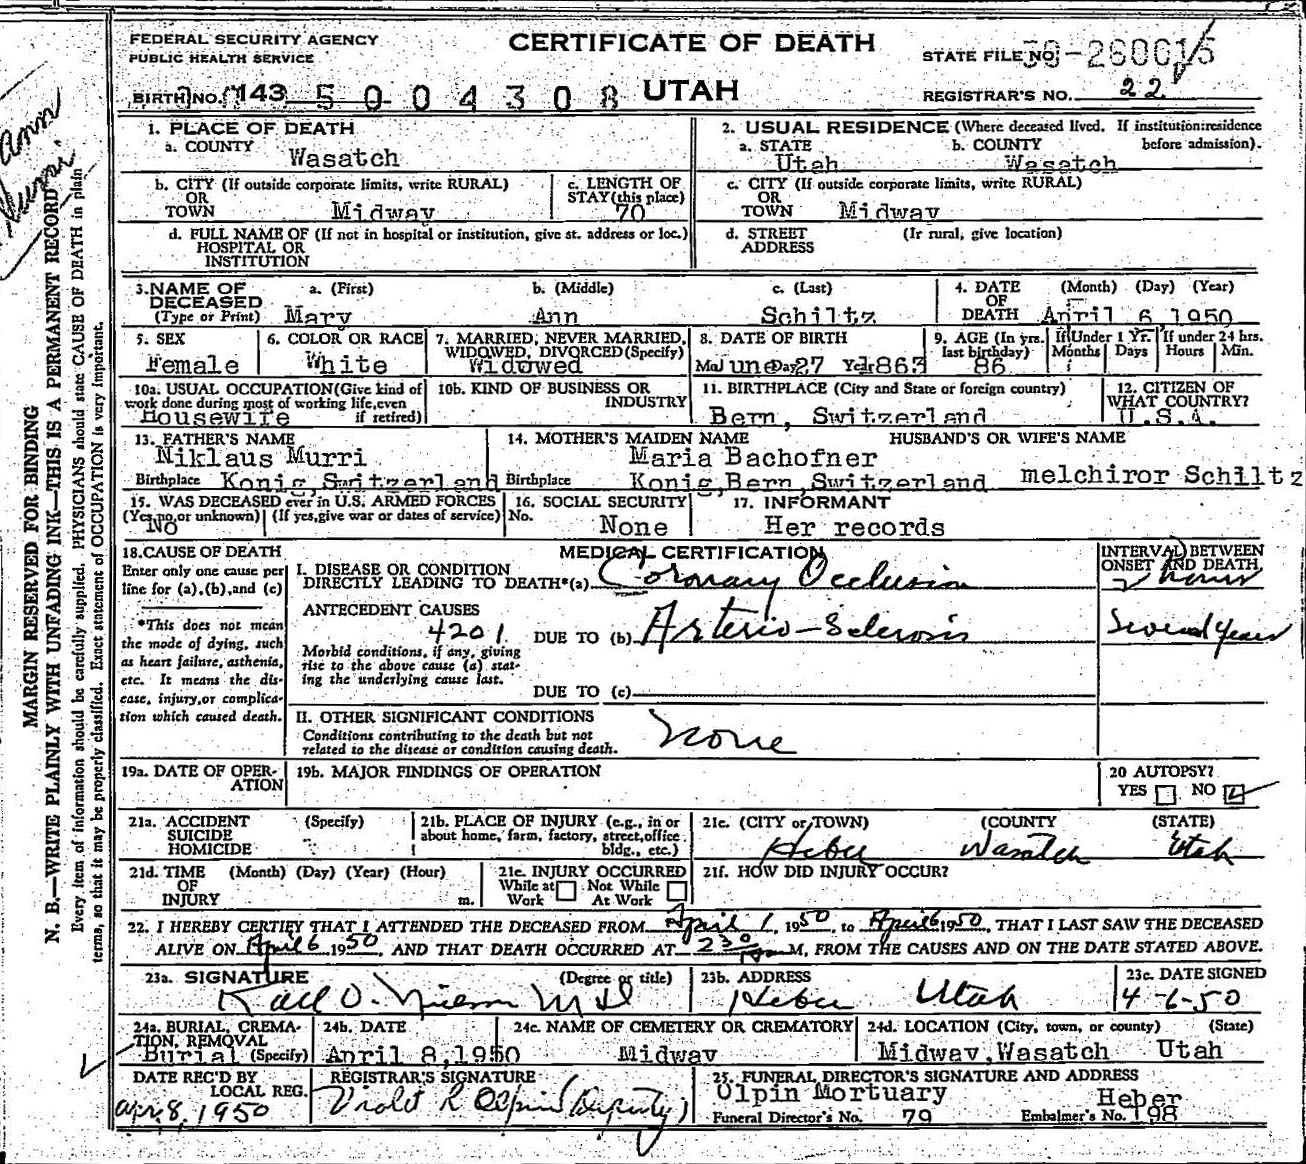 FEDERAL SECURITY AGENCY
PUBLIC HEALTH SERVICE
CERTIFICATE OF DEATH
UTAH
STATE FILE NO.
BIRTH NO. 143 5004308
REGISTRAR'S NO. 22
1. PLACE OF DEATH
a. COUNTY Wasatch
2. USUAL RESIDENCE (Where deceased lived. If institution: residence before admission).
a. STATE Utah b. COUNTY Wasatch
b. CITY (If outside corporate limits, write RURAL)
OR
TOWN Midway
c. LENGTH OF
STAY (this place)
70
c. CITY (If outside corporate limits, write RURAL)
OR
TOWN Midway
d. FULL NAME OF (If not in hospital or institution, give st. address or loc.)
HOSPITAL OR
INSTITUTION
d. STREET (If rural, give location)
ADDRESS
3. NAME OF DECEASED a. (First) b. (Middle) c. (Last)
(Type or Print) Mary Ann Schiltz
4. DATE OF DEATH (Month) (Day) (Year)
April 6 1950
5. SEX
Female
6. COLOR OR RACE
White
7. MARRIED, NEVER MARRIED,
WIDOWED, DIVORCED (Specify)
Widowed
8. DATE OF BIRTH
Mo June Day 27 Yr 1863
9. AGE (In yrs. last birthday)
86
If Under 1 Yr. Months Days
If under 24 hrs. Hours Min.
10a. USUAL OCCUPATION (Give kind of
work done during most of working life, even
if retired)
Housewife
10b. KIND OF BUSINESS OR
INDUSTRY
11. BIRTHPLACE (City and State or foreign country)
Bern, Switzerland
12. CITIZEN OF
WHAT COUNTRY?
U.S.A.
13. FATHER'S NAME
Niklaus Murri
Birthplace Konig, Switzerland
14. MOTHER'S MAIDEN NAME
Maria Bachofner
Birthplace Konig, Bern, Switzerland
HUSBAND'S OR WIFE'S NAME
melchiror Schiltz
15. WAS DECEASED ever in U.S. ARMED FORCES
(Yes, no, or unknown) (If yes, give war or dates of service)
No
16. SOCIAL SECURITY
No. None
17. INFORMANT
Her records
18. CAUSE OF DEATH
Enter only one cause per
line for (a), (b), and (c)
*This does not mean
the mode of dying, such
as heart failure, asthenia,
etc. It means the dis-
ease, injury, or complica-
tion which caused death.
MEDICAL CERTIFICATION
I. DISEASE OR CONDITION
DIRECTLY LEADING TO DEATH* (a) Coronary Occlusion
INTERVAL BETWEEN
ONSET AND DEATH
2 hours
ANTECEDENT CAUSES
4201
DUE TO (b) Arterio-Sclerosis
Several years
Morbid conditions, if any, giving
rise to the above cause (a) stat-
ing the underlying cause last.
DUE TO (c)
II. OTHER SIGNIFICANT CONDITIONS
Conditions contributing to the death but not
related to the disease or condition causing death.
None
19a. DATE OF OPER-
ATION
19b. MAJOR FINDINGS OF OPERATION
20 AUTOPSY?
YES NO
21a. ACCIDENT (Specify)
SUICIDE
HOMICIDE
21b. PLACE OF INJURY (e.g., in or
about home, farm, factory, street, office
bldg., etc.)
21c. (CITY or TOWN) (COUNTY) (STATE)
Heber Wasatch Utah
21d. TIME (Month) (Day) (Year) (Hour)
OF
INJURY m.
21e. INJURY OCCURRED
While at Work Not While At Work
21f. HOW DID INJURY OCCUR?
22. I HEREBY CERTIFY THAT I ATTENDED THE DECEASED FROM April 1, 1950, to April 6 1950, THAT I LAST SAW THE DECEASED
ALIVE ON April 6 1950, AND THAT DEATH OCCURRED AT 2 30 M, FROM THE CAUSES AND ON THE DATE STATED ABOVE.
23a. SIGNATURE (Degree or title)
Karl O. Nielson MD
23b. ADDRESS
Heber Utah
23c. DATE SIGNED
4-6-50
24a. BURIAL, CREMA-
TION, REMOVAL
Burial (Specify)
24b. DATE
April 8, 1950
24c. NAME OF CEMETERY OR CREMATORY
Midway
24d. LOCATION (City, town, or county) (State)
Midway, Wasatch Utah
DATE REC'D BY
LOCAL REG.
Apr 8, 1950
REGISTRAR'S SIGNATURE
Violet R Olpin (Deputy)
25. FUNERAL DIRECTOR'S SIGNATURE AND ADDRESS
Olpin Mortuary Heber
Funeral Director's No. 79 Embalmer's No. 198
MARGIN RESERVED FOR BINDING
N. B.—WRITE PLAINLY WITH UNFADING INK—THIS IS A PERMANENT RECORD
Every item of information should be carefully supplied. PHYSICIANS should state CAUSE OF DEATH in plain
terms, so that it may be properly classified. Exact statement of OCCUPATION is very important.
Ann
Murri